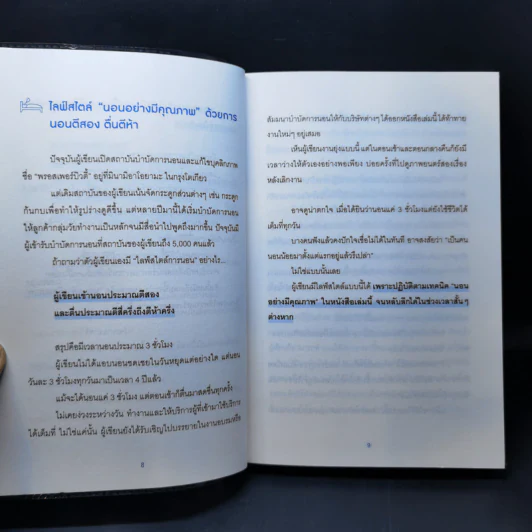 ไลฟ์สไตล์ “นอนอย่างมีคุณภาพ” ด้วยการ
นอนตีสอง ตื่นตีห้า
ปัจจุบันผู้เขียนเปิดสถาบันบำบัดการนอนและแก้ไขบุคลิกภาพ
ชื่อ “พรอสเพอร์บิวตี้” อยู่ที่มินามิอาโอยามะ ในกรุงโตเกียว
แต่เดิมสถาบันของผู้เขียนเน้นจัดกระดูกส่วนต่างๆ เช่น กระดูก
ก้นกบเพื่อทำให้รูปร่างดูดีขึ้น แต่หลายปีมานี้ได้เริ่มบำบัดการนอน
ให้ลูกค้ากลุ่มวัยทำงานเป็นหลักจนมีสื่อนำไปพูดถึงมากขึ้น ปัจจุบันมี
ผู้เข้ารับบำบัดการนอนที่สถาบันของผู้เขียนถึง 5,000 คนแล้ว
ถ้าถามว่าตัวผู้เขียนเองมี “ไลฟ์สไตล์การนอน” อย่างไร...
ผู้เขียนเข้านอนประมาณตีสอง
และตื่นประมาณตีสี่ครึ่งถึงตีห้าครึ่ง
สรุปคือมีเวลานอนประมาณ 3 ชั่วโมง
ผู้เขียนไม่ได้แอบนอนชดเชยในวันหยุดแต่อย่างใด แต่นอน
วันละ 3 ชั่วโมงทุกวันมาเป็นเวลา 4 ปีแล้ว
แม้จะได้นอนแค่ 3 ชั่วโมง แต่ตอนเช้าก็ตื่นมาสดชื่นทุกครั้ง
ไม่เคยง่วงระหว่างวัน ทำงานและให้บริการผู้ที่เข้ามาใช้บริการ
ได้เต็มที่ ไม่ใช่แค่นั้น ผู้เขียนยังได้รับเชิญไปบรรยายในงานอบรมหรือ
8
สัมมนาบำบัดการนอนให้กับบริษัทต่างๆ ได้ออกหนังสือเล่มนี้ ได้ท้าทาย
งานใหม่ๆ อยู่เสมอ
เห็นผู้เขียนงานยุ่งแบบนี้ แต่ในตอนเช้าและตอนกลางคืนก็ยังมี
เวลาว่างให้ตัวเองอย่างพอเพียง บ่อยครั้งที่ไปดูภาพยนตร์สองเรื่อง
หลังเลิกงาน
อาจดูน่าตกใจ เมื่อได้ยินว่านอนแค่ 3 ชั่วโมงแต่ยังใช้ชีวิตได้
เต็มที่ทุกวัน
บางคนฟังแล้วคงปักใจเชื่อไม่ได้ในทันที อาจสงสัยว่า “เป็นคน
นอนน้อยมาตั้งแต่แรกอยู่แล้วรึเปล่า”
ไม่ใช่แบบนั้นเลย
ผู้เขียนมีไลฟ์สไตล์แบบนี้ได้ เพราะปฏิบัติตามเทคนิค “นอน
อย่างมีคุณภาพ” ในหนังสือเล่มนี้ จนหลับลึกได้ในช่วงเวลาสั้นๆ
ต่างหาก